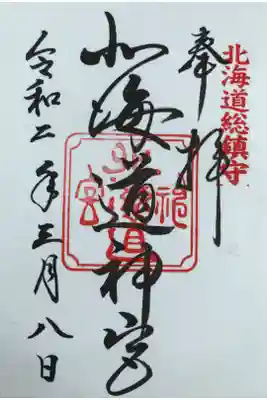 北海道総鎮守
奉拝
北海道神宮
令和二年三月八日